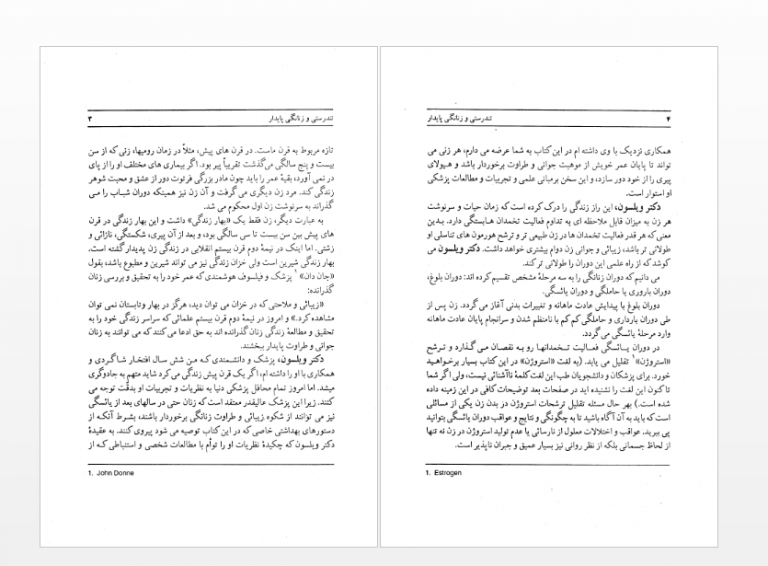 تندرستی و زنانگی پایدار ۳
تازه مربوط به قرن ماست. در قرن های پیش، مثلاً در زمان رومیها، زنی که از سن
بیست و پنج سالگی می‌گذشت تقریباً پیر بود. اگر بیماری های مختلف او را از پای
در نمی آورد، بقیهٔ عمر را باید چون مادر بزرگی فرتوت دور از عشق و محبت شوهر
زندگی کند. مرد زن دیگری می گرفت و آن زن نیز همینکه دوران شباب را می
گذراند به سرنوشت زن اول محکوم می شد.
به عبارت دیگر، زن فقط یک «بهار زندگی» داشت و این بهار زندگی در قرن
های پیش بین سن بیست تا سی سالگی بود، و بعد از آن پیری، شکستگی، نازائی و
زشتی. اما اینک در نیمهٔ دوم قرن بیستم انقلابی در زندگی زن پدیدار گفته است.
بهار زندگی شیرین است ولی خزان زندگی نیز می تواند شیرین و مطبوع باشد، بقول
«جان دان»۱ پزشک و فیلسوف هوشمندی که عمر خود را به تحقیق و بررسی زنان
گذرانده:
«زیبائی و ملاحتی که در خزان می توان دید، هرگز در بهار وتابستان نمی توان
مشاهده کرد.» و امروز در نیمهٔ دوم قرن بیستم علمائی که سراسر زندگی خود را به
تحقیق و مطالعهٔ زندگی زنان گذرانده اند به حق ادعا می کنند که می توانند به زنان
جوانی و طراوت پایدار ببخشند.
دکتر ویلسون، پزشک و دانشمندی که من شش سال افتخار شاگردی و
همکاری با او را داشته ام، اگر یک قرن پیش زندگی می کرد شاید متهم به جادوگری
میشد. اما امروز تمام محافل پزشکی دنیا به نظریات و تجربیات او بدقت توجه می
کنند. زیرا این پزشک عالیقدر معتقد است که زنان حتی در سالهای بعد از یائسگی
نیز می توانند از شکوه زیبائی و طراوت زنانگی برخوردار باشند، بشرط آنکه از
دستورهای بهداشتی خاصی که در این کتاب توصیه می شود پیروی کنند. به عقیدهٔ
دکتر ویلسون که چکیدهٔ نظریات او را توأم با مطالعات شخصی و استنباطی که از
1. John Donne
۴ تندرستی و زنانگی پایدار
همکاری نزدیک با وی داشته ام در این کتاب به شما عرضه می دارم، هر زنی می
تواند تا پایان عمر خویش از موهبت جوانی و طراوت برخوردار باشد و هیولای
پیری را از خود دور سازد، و این سخن برمبانی علمی و تجربیات و مطالعات پزشکی
او استوار است.
دکتر ویلسون، این راز زندگی را درک کرده است که زمان حیات و سرنوشت
هر زن به میزان قابل ملاحظه ای به تداوم فعالیت تخمدان هابستگی دارد. بدین
معنی که هر قدر فعالیت تخمدان ها در زن طبیعی تر و ترشح هورمون های تناسلی او
طولانی تر باشد، زیبائی و جوانی زن دوام بیشتری خواهد داشت. دکتر ویلسون می
کوشد که از راه علمی این دوران را طولانی تر کند.
می دانیم که دوران زنانگی را به سه مرحلهٔ مشخص تقسیم کرده اند: دوران بلوغ،
دوران باروری یا حاملگی و دوران یائسگی.
دوران بلوغ با پیدایش عادت ماهانه و تغییرات بدنی آغاز می گردد. زن پس از
طی دوران بارداری و حاملگی کم کم با نامنظم شدن و سرانجام پایان عادت ماهانه
وارد مرحلهٔ یائسگی می گردد.
در دوران یائسگی فعالیت تخمدانها رو به نقصان می گذارد و ترشح
«استروژن»۱ تقلیل می یابد. (به لغت «استروژن» در این کتاب بسیار برخواهید
خورد. برای پزشکان و دانشجویان طب این لغت کلمهٔ ناآشنائی نیست، ولی اگر شما
تا کنون این لغت را نشنیده اید در صفحات بعد توضیحات کافی در این زمینه داده
شده است.) بهر حال مسئله تقلیل ترشحات استروژن در بدن زن یکی از مسائلی
است که باید به آن آگاه باشید تا به چگونگی و نتایج و عواقب دوران یائسگی بتوانید
پی ببرید. عواقب و اختلالات معلول از نارسائی یا عدم تولید استروژن در زن نه تنها
از لحاظ جسمانی بلکه از نظر روانی نیز بسیار عمیق و جبران ناپذیر است.
1. Estrogen